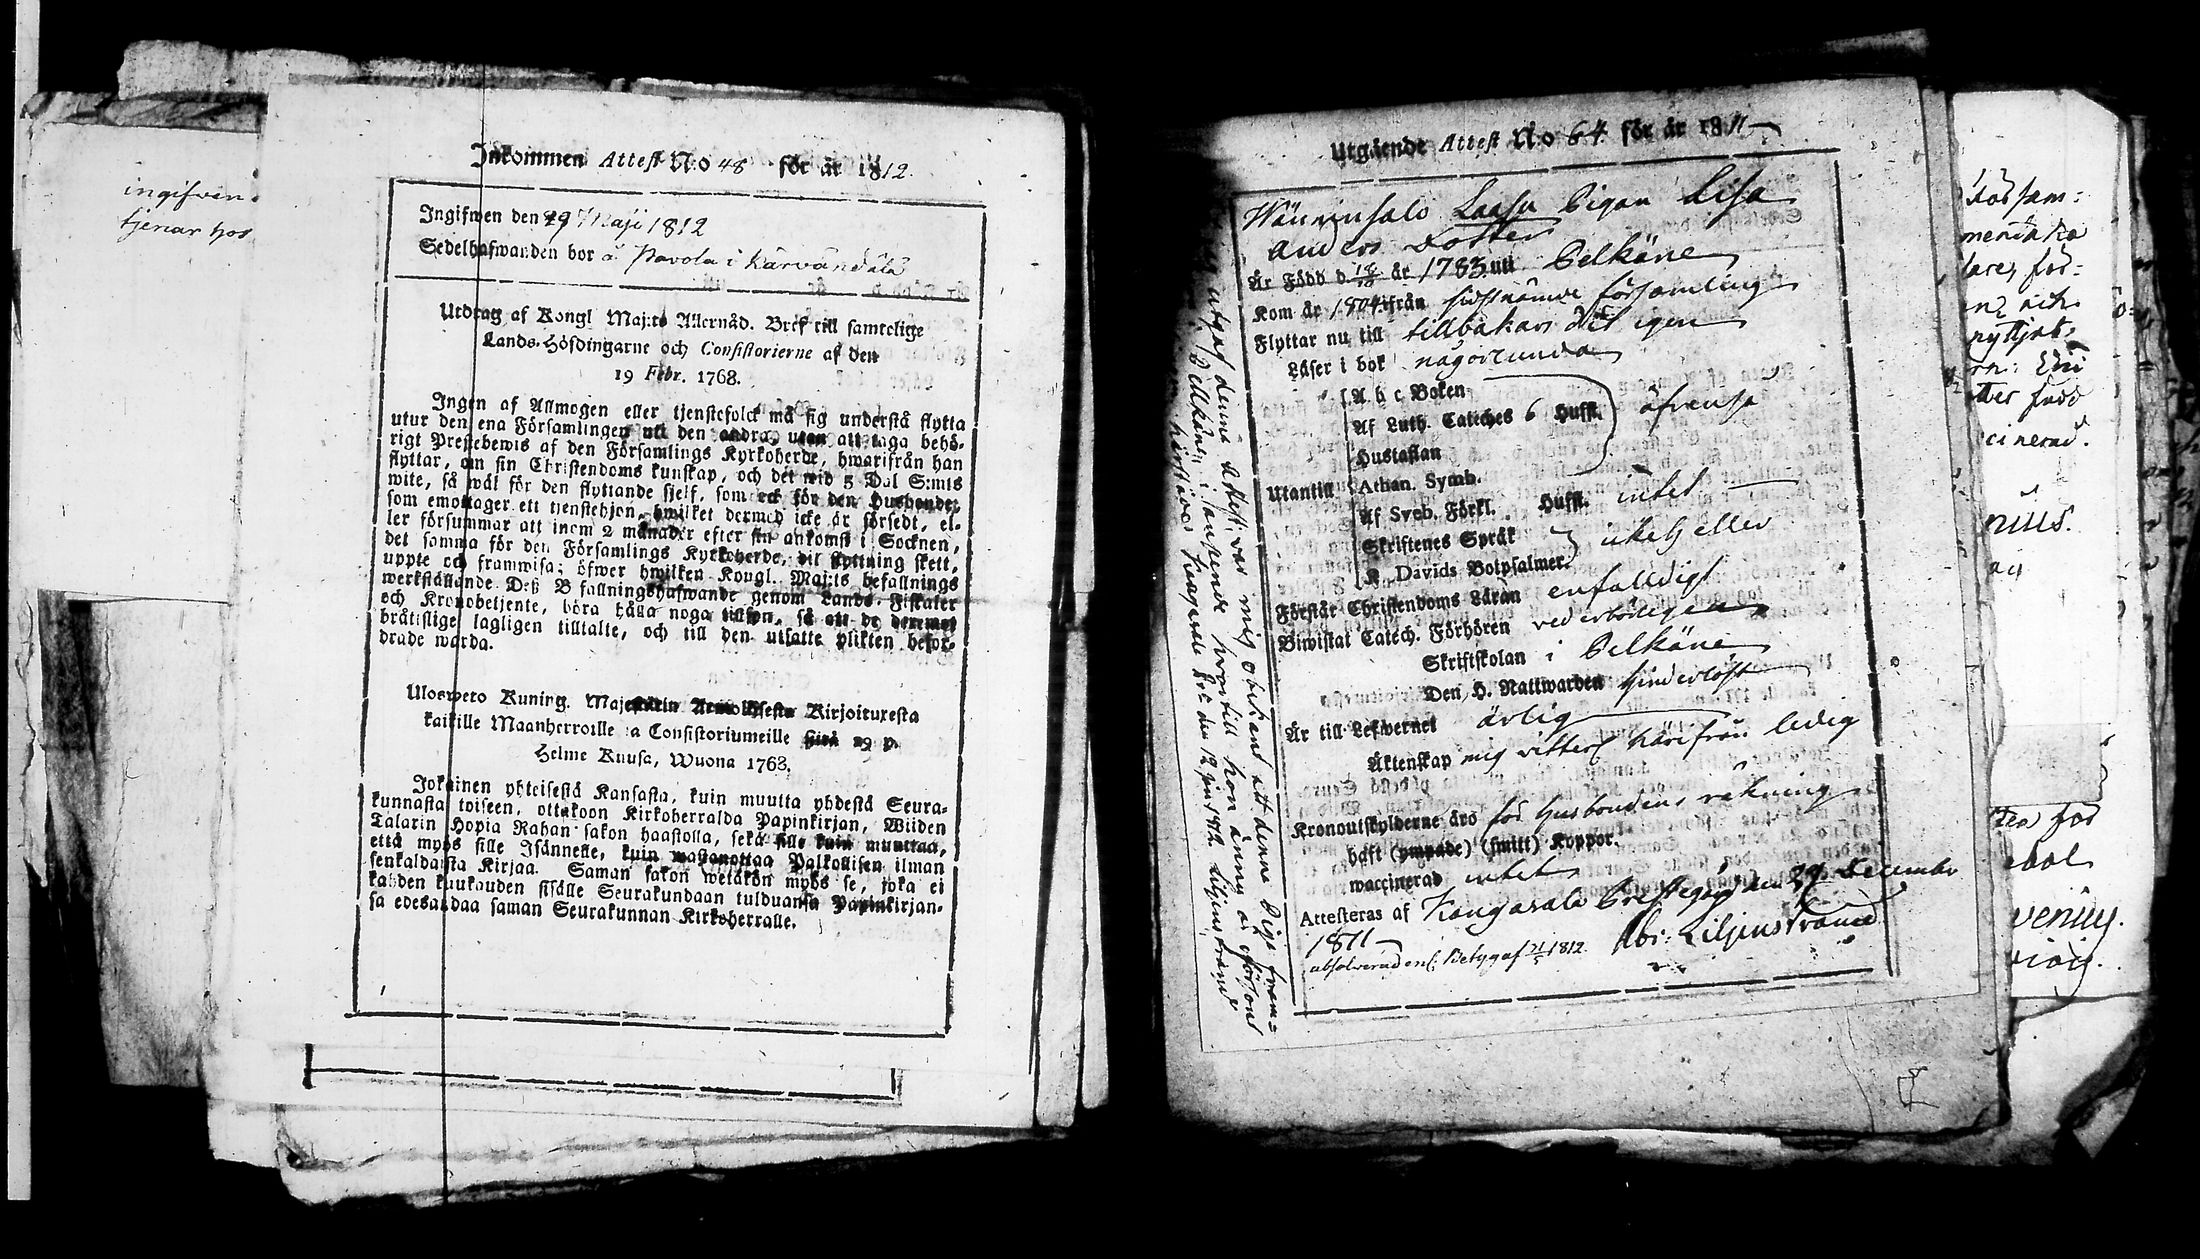 ingifven
tjenar hos
Inkommen Attest N:o 48 för år 1812.
Ingifwen den 29 Maji 1812
Sedelhafwanden bor å Pavola i Kärvändälä
Utdrag af Kongl Maj:ts Allernåd. Bref till samtelige
Lands-Höfdingarne och Consistorierne af den
19 Febr. 1768.
Ingen af Allmogen eller tjenstefolck må sig understå flytta
utur den ena Församlingen uti den andra, utan att taga behö-
rigt Prestebewis af den Församlings Kyrkoherde, hwarifrån han
flyttar, om sin Christendoms kunskap, och det wid 5 Dal S:mts
wite, så wäl för den flyttande sjelf, som ock för den Husbonde,
som emottager ett tjenstehjon, hwilket dermed icke är försedt, el-
ler försummar att inom 2 månader efter sin ankomst i Socknen,
det samma för den Församlings Kyrkoherde, dit flyttning skett,
uppte och framwisa; öfwer hwilken Kongl. Maj:ts befallnings
werkställande Deß Befallningshafwande genom Lands-Fiskaler
och Kronobetjente, böra hålla noga tillsyn, så att de deremot
bråtislige lagligen tilltalte, och till den utsatte plikten befor-
drade warda.
Uloswero Kuning. Majestätin Armollisesta Kirjoituxesta
kaikille Maanherroille ja Consistoriumeille sinä 19 p.
Helme Kuusa, Wuona 1768.
Jokainen yhteisestä Kansasta, kuin muutta yhdestä Seura-
kunnasta toiseen, ottakoon Kirkoherralda Papinkirjan, Wiiden
Talarin Hopia Rahan sakon haastolla, sekä sille kuin muuttaa,
että myös sille Isännelle, kuin wastanottaa Palkollisen ilman
senkaldaista Kirjaa. Saman sakon wetäkön myös se, joka ei
kahden kuukauden sisälle Seurakundaan tulduansa Papinkirjan-
sa edesandaa saman Seurakunnan Kirkoherralle.
Utgående Attest N:o 64 för år 1811
Wänninsalo Laasu Pigan Lisa
Anders Dotter
Är Född d. 18/10 år 1783 uti Pelkäne
Kom år 1804 ifrån sistnämde församling
Flyttar nu till tillbakars dit igen
Läser i bok någorlunda
A b c Boken
Af Luth. Cateches 6 Hufst. äfvenså
Hustaflan
Utantill Athan. Symb.
Af Sveb. Förkl. Hufst. intet
Skriftenes Språk ickeheller
K. Davids Botpsalmer
Förstår Christendoms Läran enfaldigt
Biwistat Catech. Förhören vederbörligen
Skriftskolan i Pelkäne
Den H. Nattwarden hinderlöst
Är till Lefwernet ärlig
Äktenskap mig vitterl härifrån ledig
Kronoutskylderne äro för husbondens räkning
haft (ympade) (smitt) Koppor.
waccinerad intet
Attesteras af Kangasala Prestegård den 29 December
1811 Abr: Liljenstrand
absolverad enl. Betyg af 21/5 1812.
utgaf denna Attest, var mig obekant att denne Piga fram-
Pelkäne, hvartill hon ännu är oförsond
härstäves Kangasala d. 12 Jan 1812 Liljenstrand